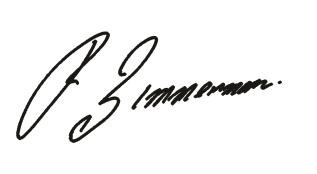 P. Zimmerman.